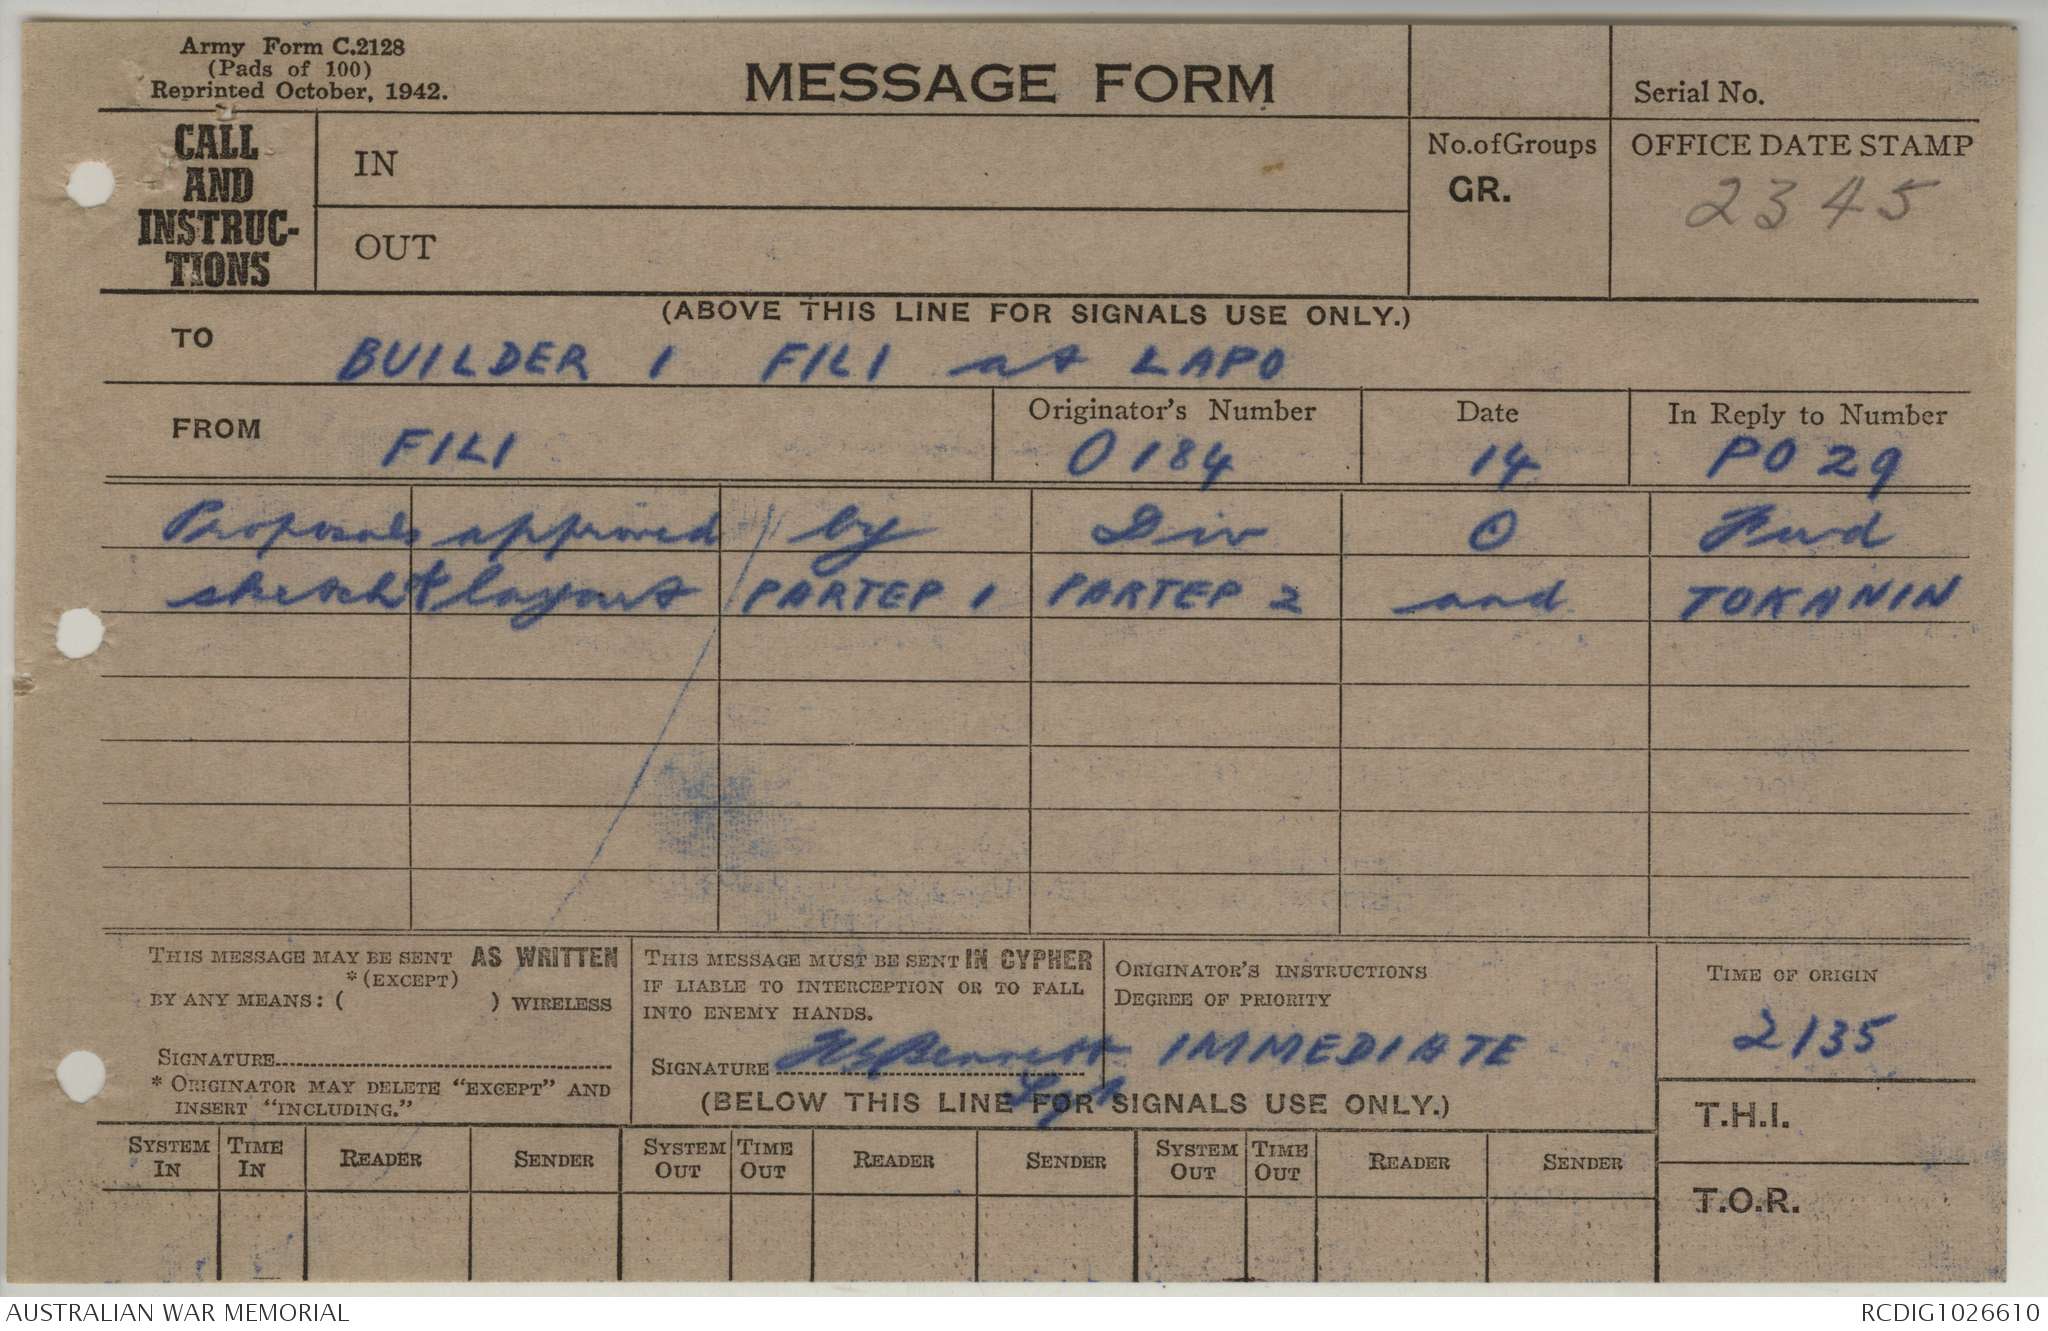 Army Form C.2128
(Pads of 100)
Reprinted October, 1942.
MESSAGE FORM
Serial No.
CALL
AND
INSTRUC-
TIONS
IN
OUT
No. of Groups
GR.
OFFICE DATE STAMP
2345
(ABOVE THIS LINE FOR SIGNALS USE ONLY.)
TO BUILDER 1 FILI at LAPO
FROM FILI
Originator's Number
O 184
Date
14
In Reply to Number
PO 29
Proposals approved by Div O Fwd
sketch & layout PARTEP 1 PARTEP 2 and TOKANIN
THIS MESSAGE MAY BE SENT AS WRITTEN
*(EXCEPT)
BY ANY MEANS: ( ) WIRELESS
SIGNATURE
* ORIGINATOR MAY DELETE "EXCEPT" AND
INSERT "INCLUDING."
THIS MESSAGE MUST BE SENT IN CYPHER
IF LIABLE TO INTERCEPTION OR TO FALL
INTO ENEMY HANDS.
SIGNATURE Bennett
ORIGINATOR'S INSTRUCTIONS
DEGREE OF PRIORITY
IMMEDIATE
TIME OF ORIGIN
2135
(BELOW THIS LINE FOR SIGNALS USE ONLY.)
T.H.I.
T.O.R.
SYSTEM IN
TIME IN
READER
SENDER
SYSTEM OUT
TIME OUT
READER
SENDER
SYSTEM OUT
TIME OUT
READER
SENDER
AUSTRALIAN WAR MEMORIAL
RCDIG1026610